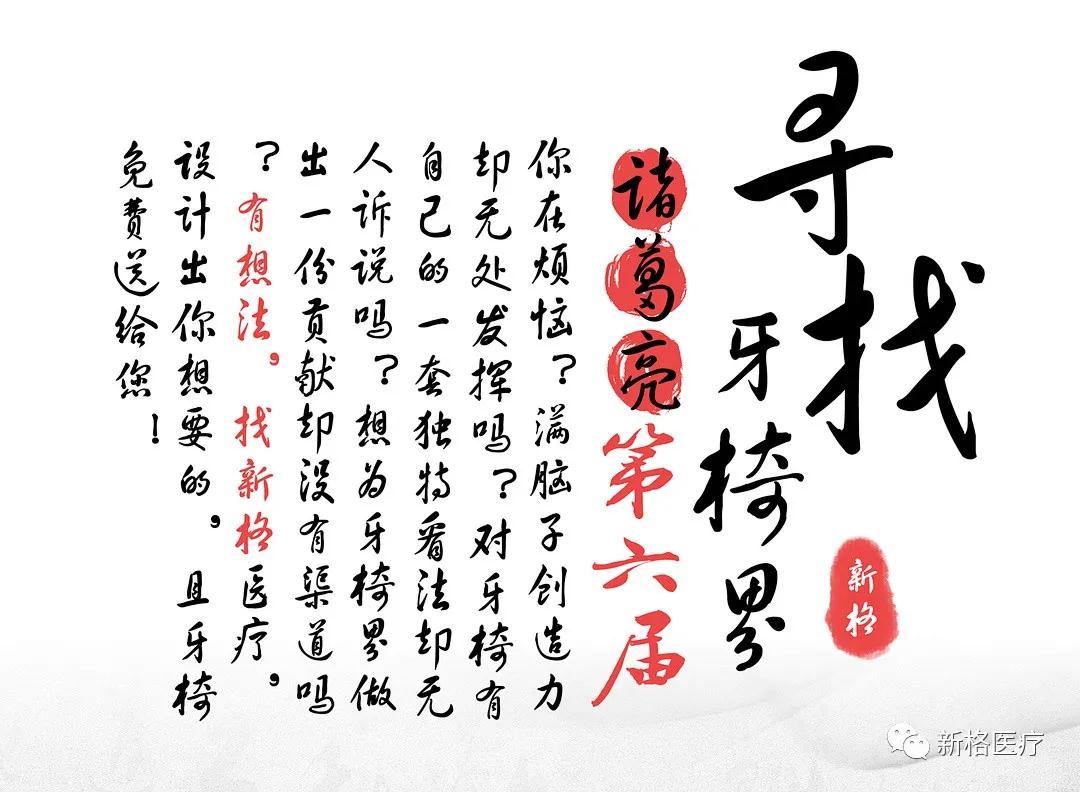 寻找
牙椅界
诸葛亮第六届
新格
你在烦恼?满脑子创造力
却无处发挥吗?对牙椅有
自己的一套独特看法却无
人诉说吗?想为牙椅界做
出一份贡献却没有渠道吗
?有想法,找新格医疗,
设计出你想要的,且牙椅
免费送给您!
新格医疗